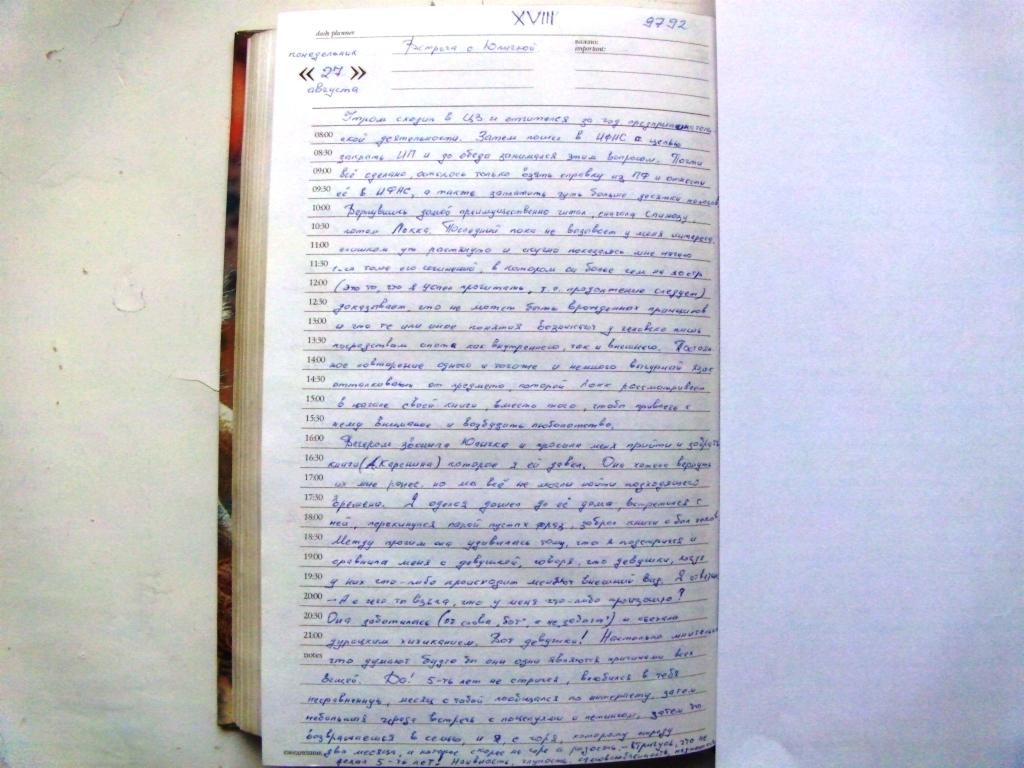 XVIII
9792
daily planner
важно:
important:
понедельник
« 27 »
августа
Встреча с Юличкой
Утром сходил в ЦЗ и отчитался за год предприниматель-
08:00 ской деятельности. Затем пошел в ИФНС с целью
08:30 закрыть ИП и до обеда занимался этим вопросом. Почти
09:00 всё сделано, осталось только взять справку из ПФ и отнести
09:30 её в ИФНС, а также заплатить чуть больше десятки налогов
10:00 Вернувшись домой преимущественно читал, сначала Спинозу,
10:30 потом Локка. Последний пока не вызывает у меня интереса,
11:00 слишком уж растянуто и скучно показалось мне начало
11:30 1-го тома его сочинений, в котором он более чем на 100 стр
12:00 (это то, что я успел прочитать, т.е. продолжение следует)
12:30 доказывает, что не может быть врожденных принципов
13:00 и что те или иные понятия возникают у человека лишь
13:30 посредством опыта как внутреннего, так и внешнего. Постоян-
14:00 ное повторение одного и того же и немного вычурной язык
14:30 отталкивают от предмета, который Локк рассматривает
15:00 в начале своей книги, вместо того, чтобы привлечь к
15:30 нему внимание и возбудить любопытство.
16:00 Вечером звонила Юличка и просила меня прийти и забрать
16:30 книги (А.Каренина) которые я ей давал. Она хотела вернуть
17:00 их мне ранее, но мы всё не могли найти подходящего
17:30 времени. Я оделся дошел до её дома, встретился с
18:00 ней, перекинулся парой пустых фраз, забрал книги и был таков
18:30 Между прочим она удивилась тому, что я подстригся и
19:00 сравнила меня с девушкой, говоря, что девушки, когда
19:30 у них что-либо происходит меняют внешний вид. Я ответил
20:00 — А с чего ты взяла, что у меня что-либо произошло?
20:30 Она заботилась (от слова "бот", а не "забота") и начала
21:00 дурацким хихиканием. Вот девушки! Настолько мнительны
notes что думают будто бы они одни являются причинами всех
вещей. Да! 5-ть лет не стригся, влюбился в тебя
несравненную, месяц с тобой пообщался по интернету, затем
небольшая череда встреч с поцелуями и петингом, затем ты
возвращаешься в семью, и я, с горя, которому
ежедневник два месяца, и которое скорее не горе а радость, — стригусь, что не
делал 5-ть лет! Наивность, глупость,